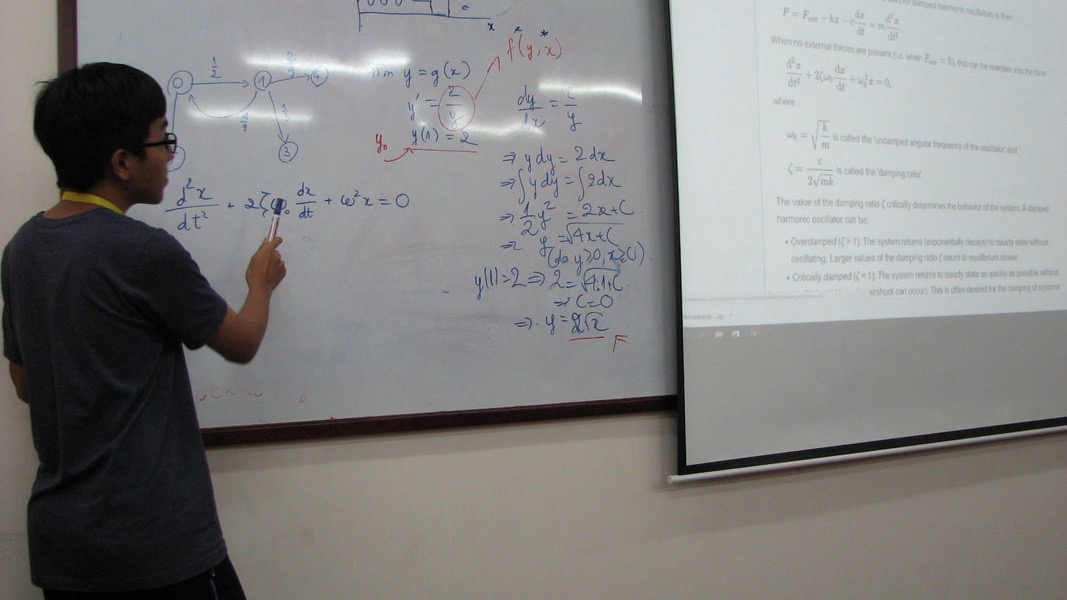 x
f(y, x)
0 1/2 1 2/9 4
4/9 3
Tìm y = g(x)
y' = 2/y
y(1) = 2
y₀
dy/dx = 2/y
⇒ y dy = 2 dx
⇒ ∫ y dy = ∫ 2dx
⇒ 1/2 y² = 2x + C
⇒ y = √4x+C
(do y ≥ 0, x ≥ 1)
y(1) = 2 ⇒ 2 = √4.1+C
⇒ C = 0
⇒ y = 2√x
F
d²x/dt² + 2ζω₀ dx/dt + ω²x = 0
for damped harmonic oscillators is then
F = F_ext − kx − c dx/dt = m d²x/dt²
When no external forces are present (i.e. when F_ext = 0), this can be rewritten into the form
d²x/dt² + 2ζω₀ dx/dt + ω₀² x = 0,
where
ω₀ = √k/m is called the 'undamped angular frequency of the oscillator' and
ζ = c/2√mk is called the 'damping ratio'.
The value of the damping ratio ζ critically determines the behavior of the system. A damped
harmonic oscillator can be:
• Overdamped (ζ > 1): The system returns (exponentially decays) to steady state without
oscillating. Larger values of the damping ratio ζ return to equilibrium slower.
• Critically damped (ζ = 1): The system returns to steady state as quickly as possible without
ershoot can occur). This is often desired for the damping of systems